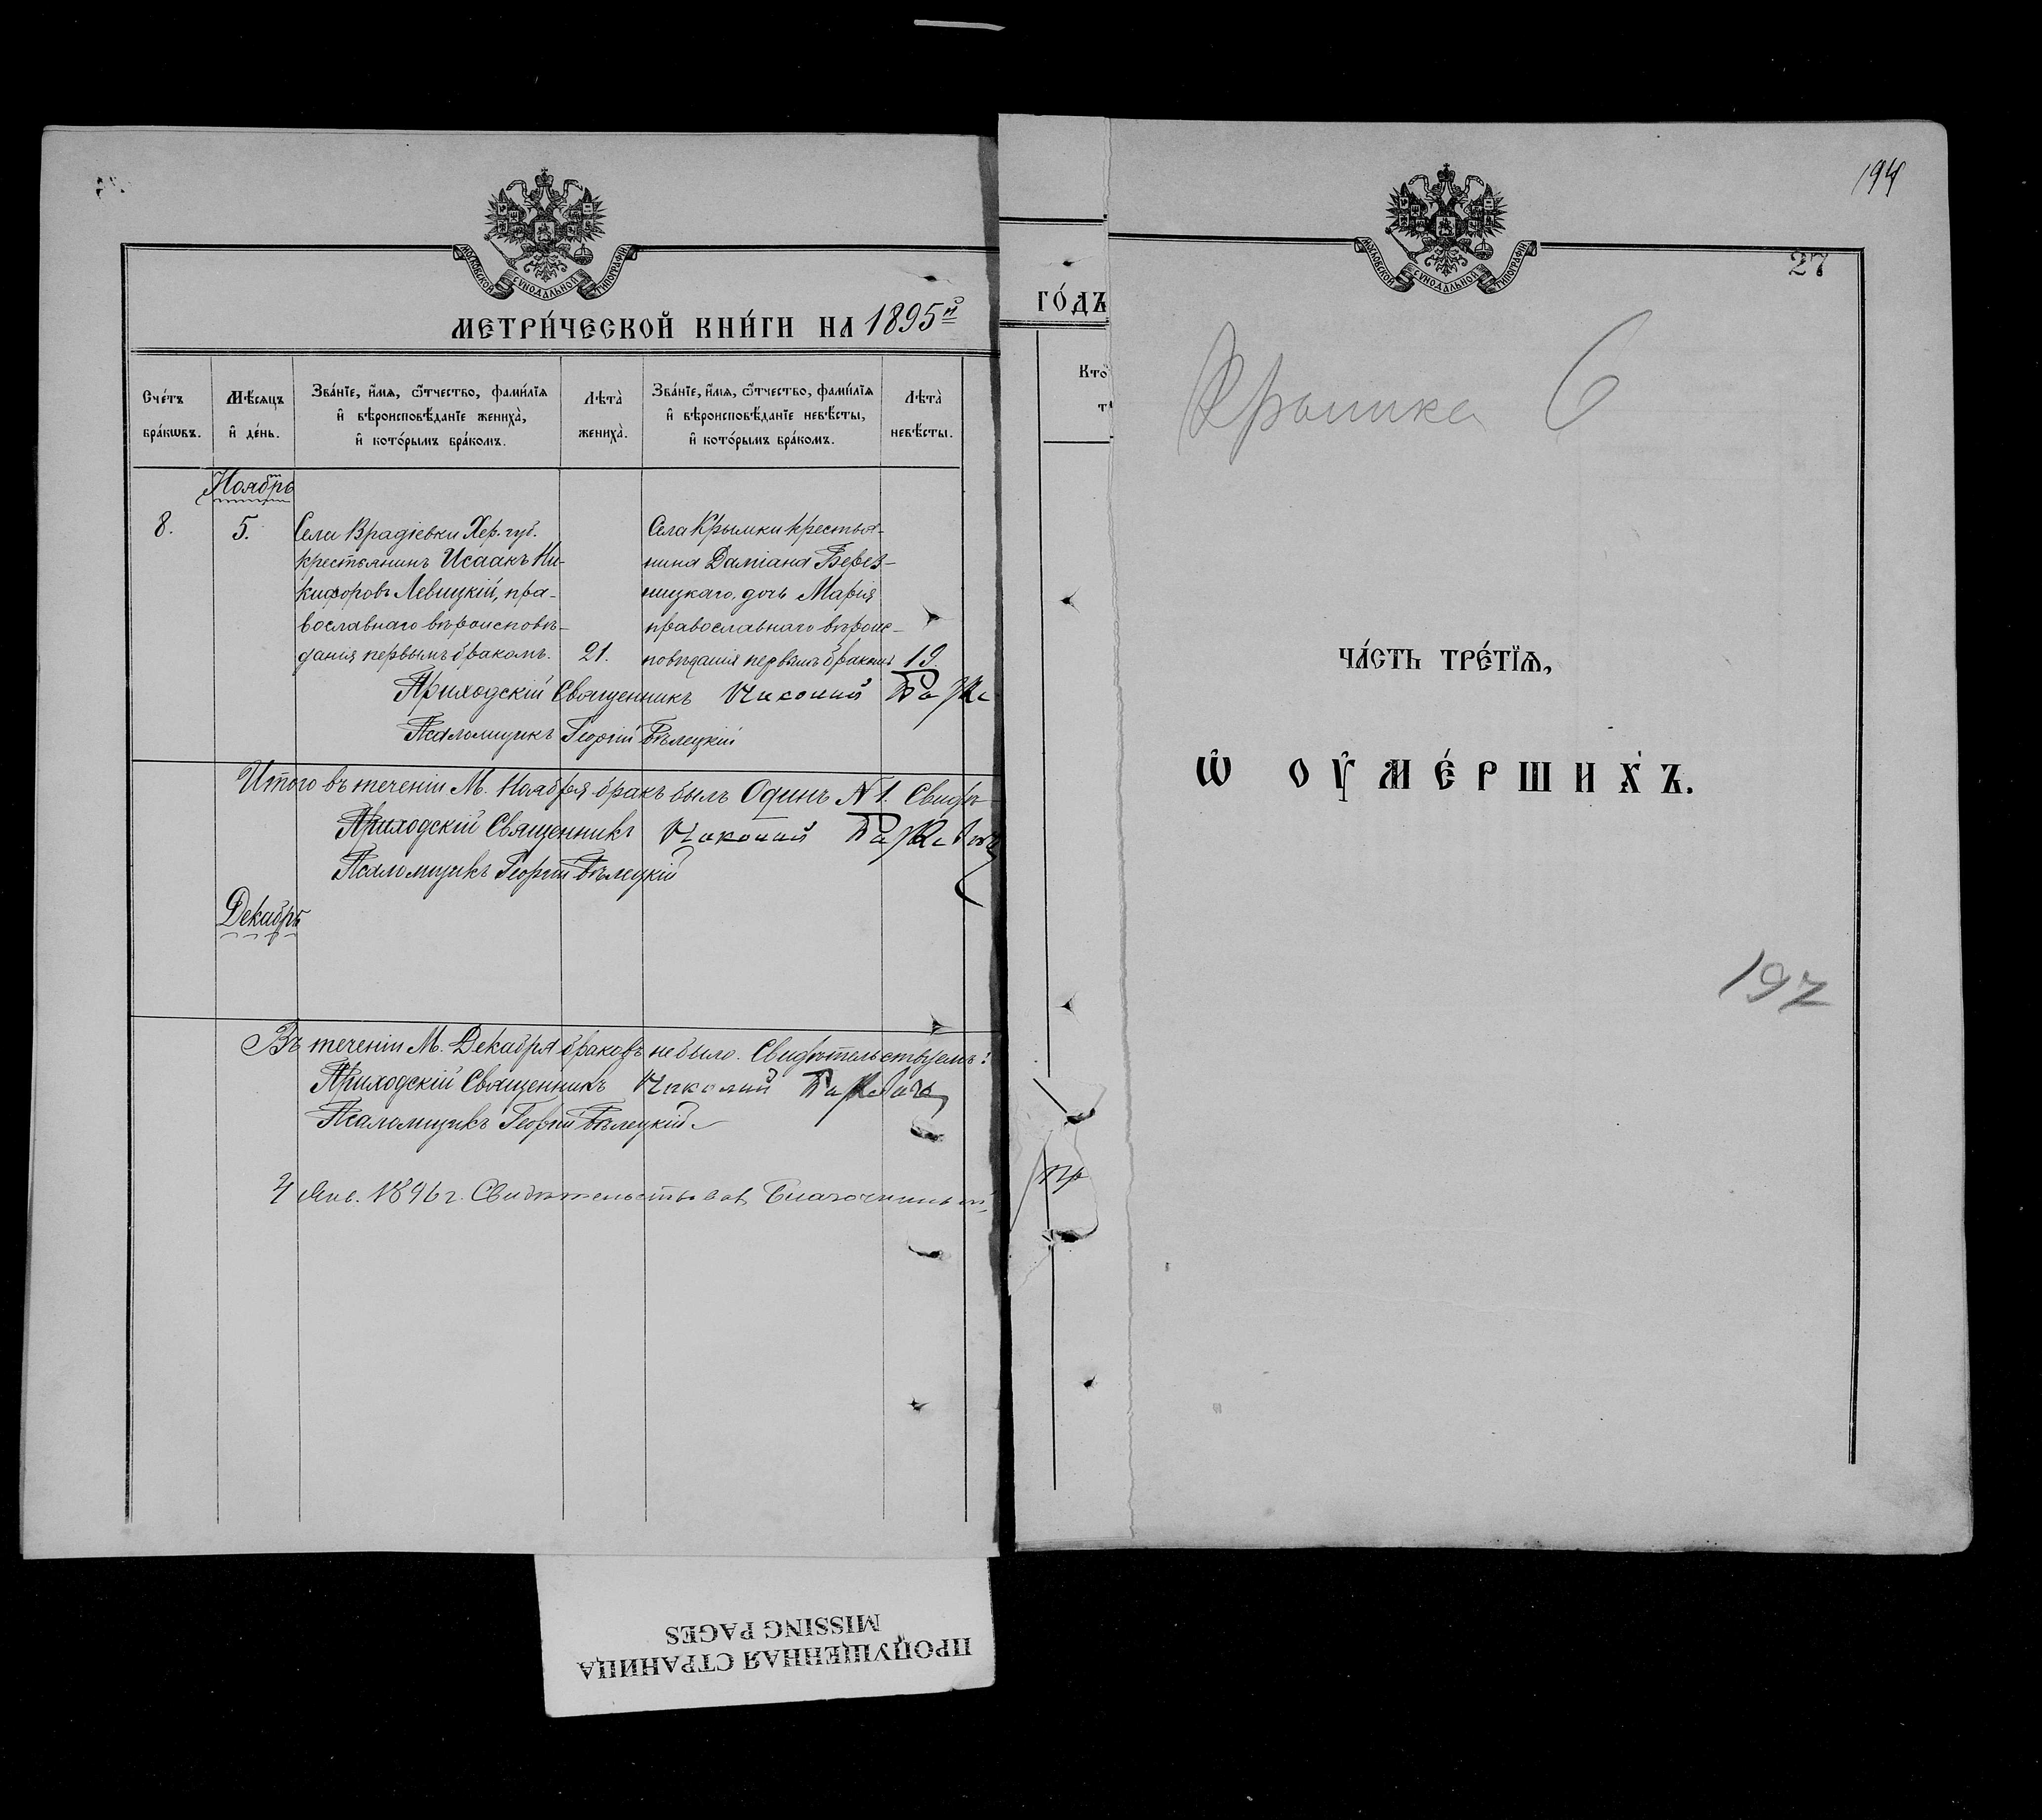 МОСКОВСКОЙ СѴНОДАЛЬНОЙ ТИПОГРАФІИ
МЕТРИ́ЧЕСКОЙ КНИ́ГИ НА 1895й
Сче́тъ бра́кѡвъ.
Мѣ́сяцъ и҆ де́нь.
Зва́нїе, и҆́мѧ, ѻ҆́тчество, фами́лїѧ и҆ вѣроисповѣ́данїе жениха̀, и҆ кото́рымъ бра́комъ.
Лѣта̀ жениха̀.
Зва́нїе, и҆́мѧ, ѻ҆́тчество, фами́лїѧ и҆ вѣроисповѣ́данїе невѣ́сты, и҆ кото́рымъ бра́комъ.
Лѣта̀ невѣ́сты.
Ноябрь
8.
5.
Села Врадіевки Хер. губ.
крестьянинъ Исаакъ Ни-
кифоровъ Левицкій, пра-
вославнаго вѣроисповѣ-
данія первымъ бракомъ.
21.
Села Крымки крестья-
нина Даміана Берез-
ницкаго, дочь Марія
православнаго вѣроис-
повѣданія первымъ бракомъ
19.
Приходскій Священникъ
Псаломщикъ Георгій Бѣлецкій
Итого въ теченіи М. Ноября бракъ былъ Одинъ N 1. Свидѣ-
Приходскій Священникъ
Псаломщикъ Георгій Бѣлецкій
Декабрь
Въ теченіи М. Декабря браковъ не было. Свидѣтельствуемъ:
Приходскій Священникъ
Псаломщикъ Георгій Бѣлецкій
4 Янв. 1896 г. Свидѣтельствовалъ Благочинный
ПРОПУЩЕННАЯ СТРАНИЦА
MISSING PAGES
ГО́ДЪ
Кто̀
194
МОСКОВСКОЙ СѴНОДАЛЬНОЙ ТИПОГРАФІИ
27
Крымка 6
ЧА́СТЬ ТРЕ́ТЇѦ,
Ѡ҆ ОУ҆МЕ́РШИХЪ.
197